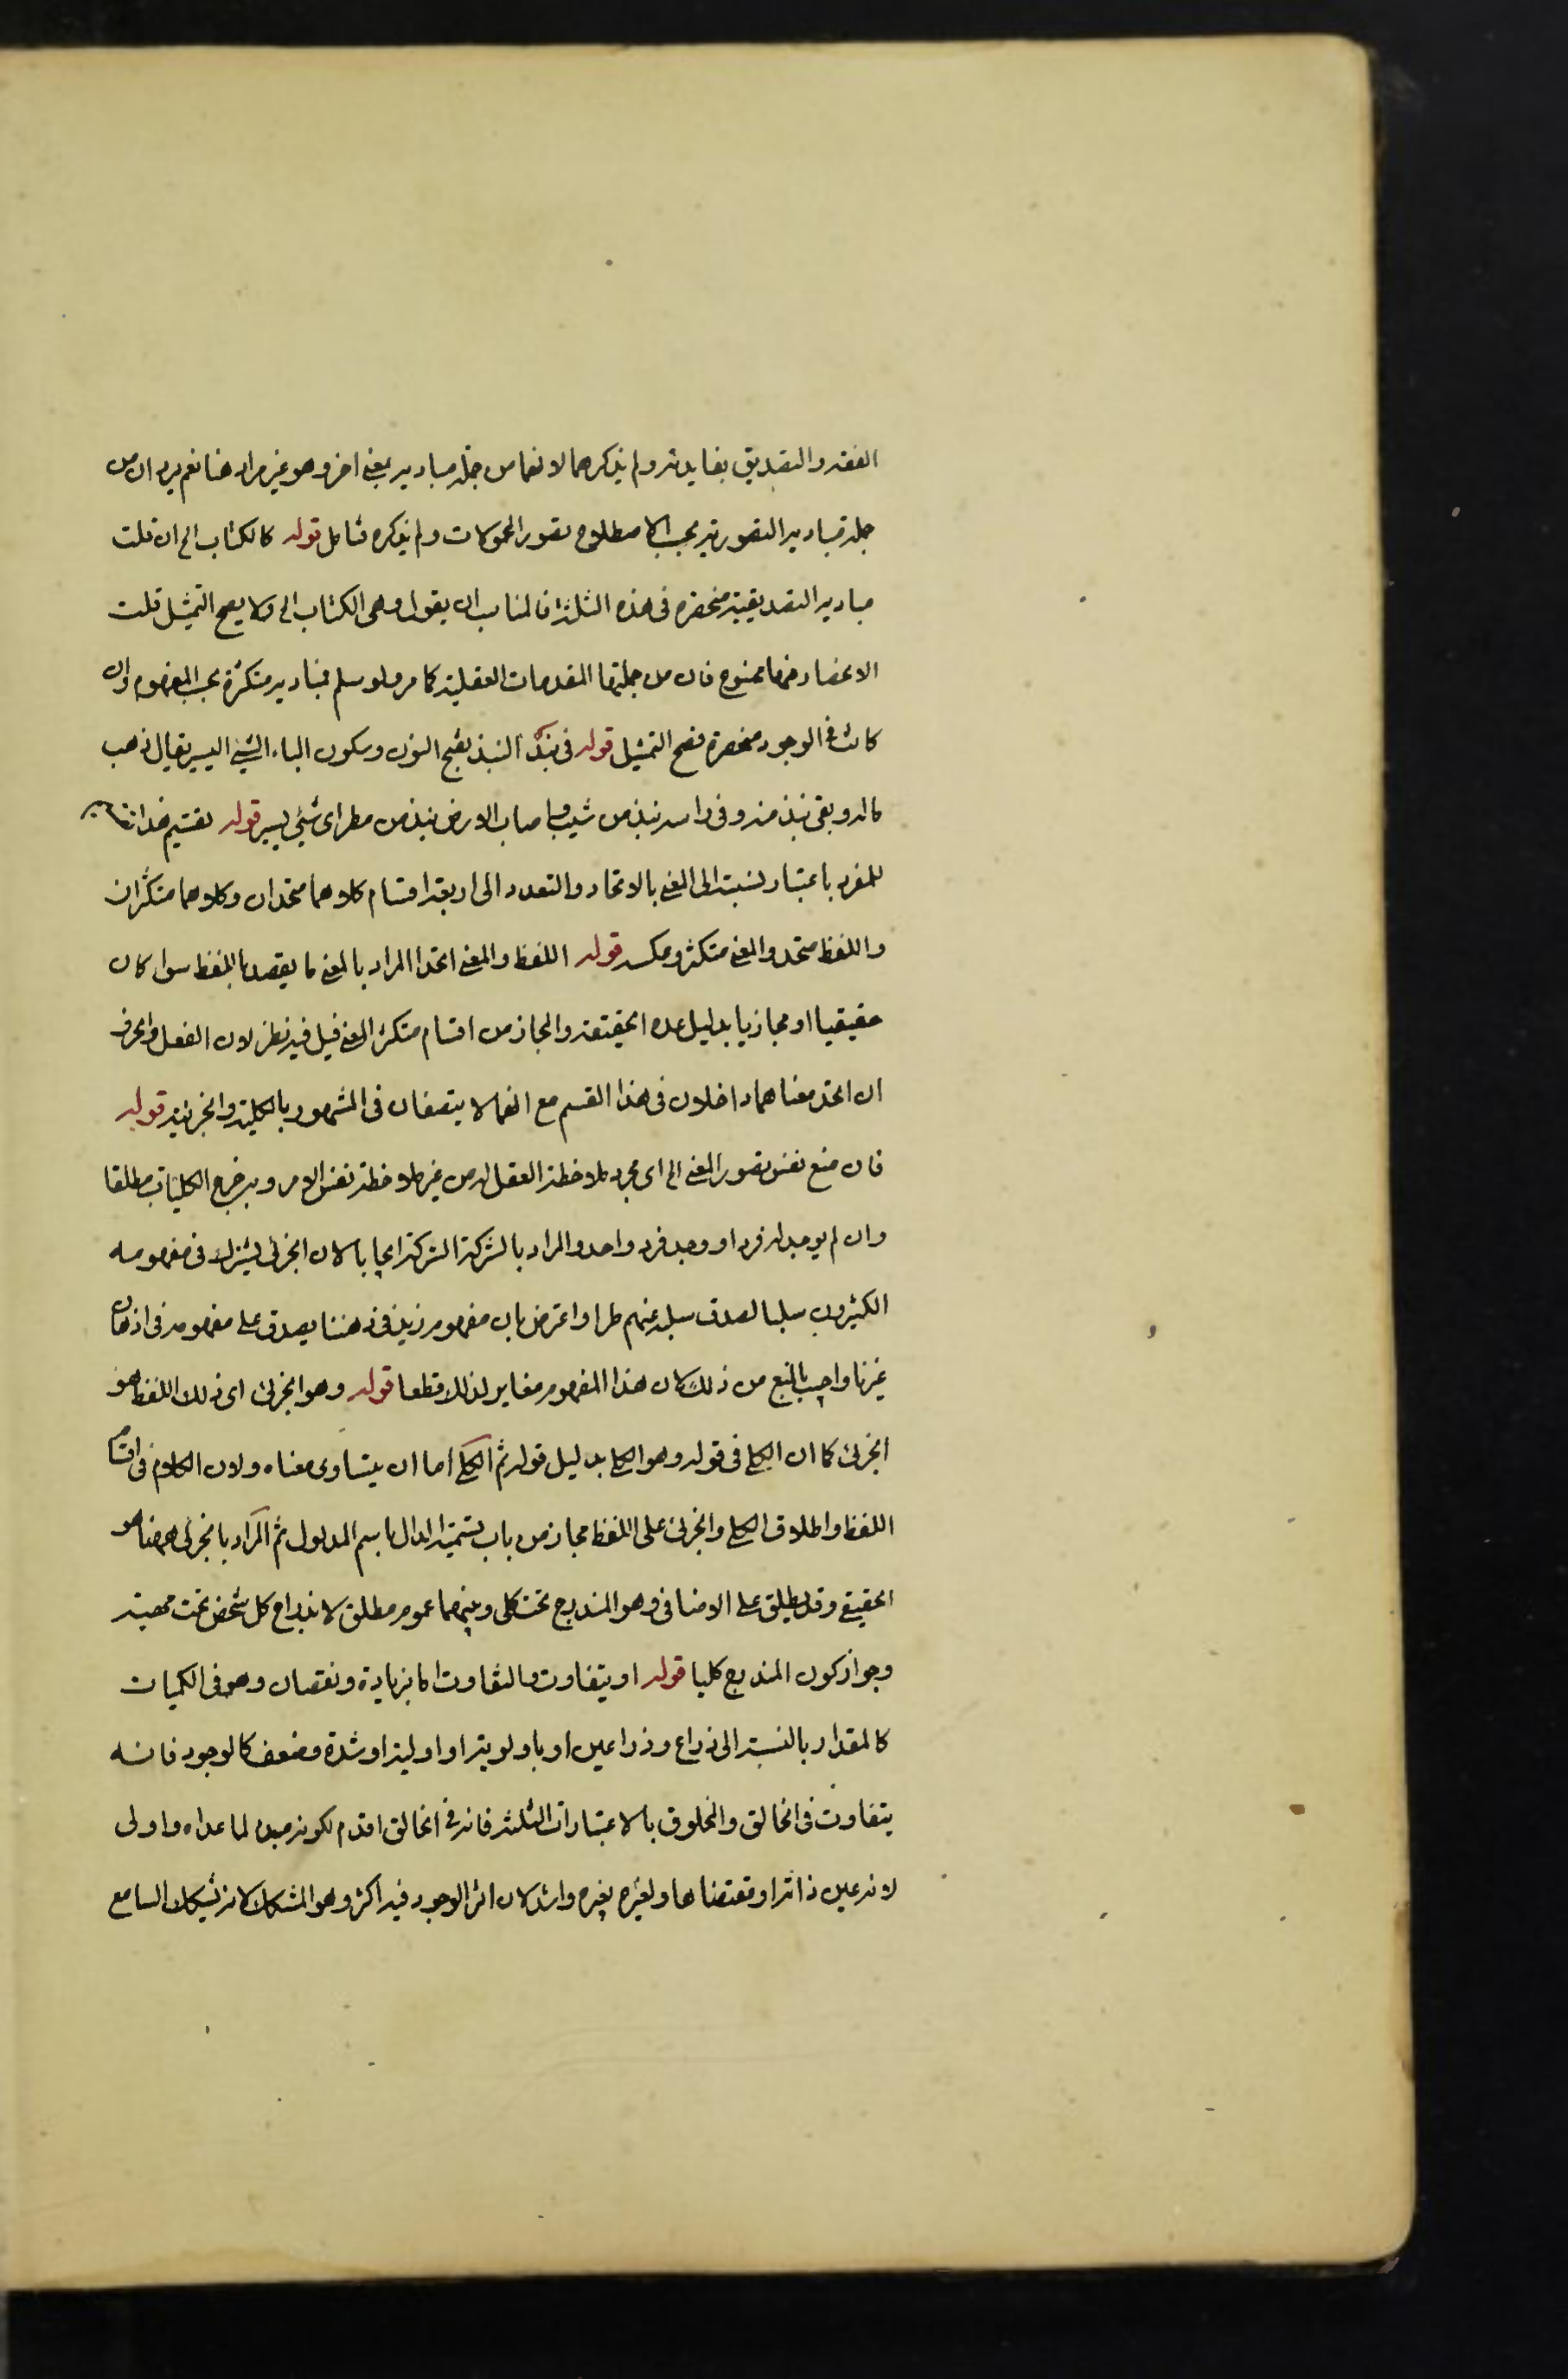 الفقه والتصديق بفايدته ولم يذكرهما لانهما من جملة مباديه بمعنى اخر وهو غير مراد هنا نعم يرد ان من
جملة مباديه التصورية بحسب الاصطلاح تصور المحمولات ولم يذكره فتامل قوله كالكتاب الخ ان قلت
مباديه التصديقية منحصرة في هذه الثلثة فالمناسب ان يقول وهي الكتاب الخ ولا يصح التمثيل قلت
الانحصار فيها ممنوع فان من جملتها المقدمات العقلية كما مر ولو سلم فمباديه متكثرة بحسب المفهوم وان
كانت في الوجود منحصرة فصح التمثيل قوله في نبذ النبذ بفتح النون وسكون الباء الشيئ اليسير يقال ذهب
ماله وبقى نبذ منه وفي راسه نبذ من شيب واصاب الارض نبذ من مطر اى شيئ يسير قوله تقسيم هذا تقسيم
للمفرد باعتبار نسبته الى المعنى بالاتحاد والتعدد الى اربعة اقسام كلاهما متحدان وكلاهما متكثران
واللفظ متحد والمعنى متكثر وعكسه قوله اللفظ والمعنى اتحدا المراد بالمعنى ما يقصد باللفظ سواء كان
حقيقيا او مجازيا بدليل عده الحقيقة والمجاز من اقسام متكثر المعنى قيل فيه نظر لان الفعل والحرف
ان اتحد معناهما داخلان في هذا القسم مع انهما لا يتصفان في المشهور بالكلية والجزئية قوله
فان منع نفس تصور المعنى الخ اى مجرد ملاحظة العقل له من غير ملاحظة نفس الامر وبه خرج الكليات مطلقا
وان لم يوجد له فرد او وجد فرد واحد والمراد بالشركة الشركة ايجابا لان الجزئى يشترك في مفهومه
الكثيرون سلبا لصدق سلبه عنهم طرا واعترض بان مفهوم زيد في ذهننا يصدق على مفهومه في اذهان
غيرنا واجيب بالمنع من ذلك لان هذا المفهوم مغاير لذلك قطعا قوله وهو الجزئى اى ذلك اللفظ هو
الجزئى كما ان الكلى في قوله وهو الكلى بدليل قوله ثم الكلى اما ان يتساوى معناه ولان الكلام في اقسام
اللفظ واطلاق الكلى والجزئى على اللفظ مجاز من باب تسمية الدال باسم المدلول ثم المراد بالجزئى ههنا هو
الحقيقى وقد يطلق على الاضافى وهو المندرج تحت كلى وبينهما عموم مطلق لاندراج كل شخص تحت مهيته
وجواز كون المندرج كليا قوله او يتفاوت والتفاوت اما بزيادة ونقصان وهو في الكميات
كالمقدار بالنسبة الى ذراع وذراعين او باولوية او اولية او شدة وضعف كالوجود فانه
يتفاوت في الخالق والمخلوق بالاعتبارات الثلثة فانه في الخالق اقدم لكونه مبدء لما عداه واولى
لانه عين ذاته او مقتضاها ولغيره بغيره واشد لان اثر الوجود فيه اكثر وهو المشكك لانه يشكك السامع